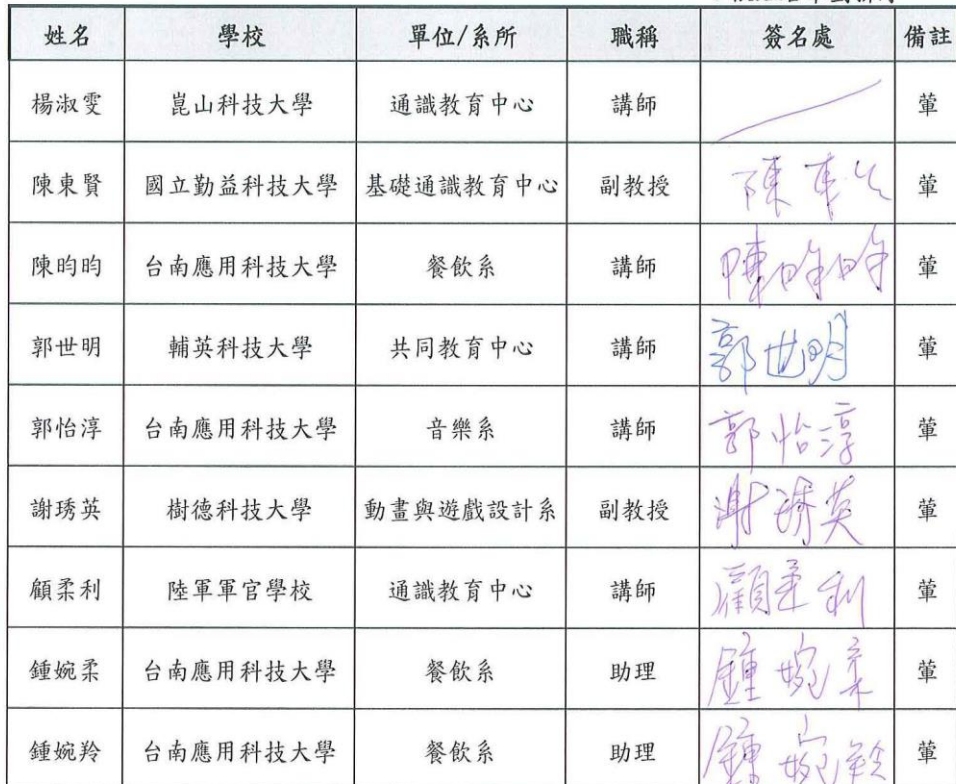 姓名 學校 單位/系所 職稱 簽名處 備註
楊淑雯 崑山科技大學 通識教育中心 講師 葷
陳東賢 國立勤益科技大學 基礎通識教育中心 副教授 陳東賢 葷
陳昀昀 台南應用科技大學 餐飲系 講師 陳昀昀 葷
郭世明 輔英科技大學 共同教育中心 講師 郭世明 葷
郭怡淳 台南應用科技大學 音樂系 講師 郭怡淳 葷
謝琇英 樹德科技大學 動畫與遊戲設計系 副教授 謝琇英 葷
顧柔利 陸軍軍官學校 通識教育中心 講師 顧柔利 葷
鍾婉柔 台南應用科技大學 餐飲系 助理 鍾婉柔 葷
鍾婉羚 台南應用科技大學 餐飲系 助理 鍾婉羚 葷